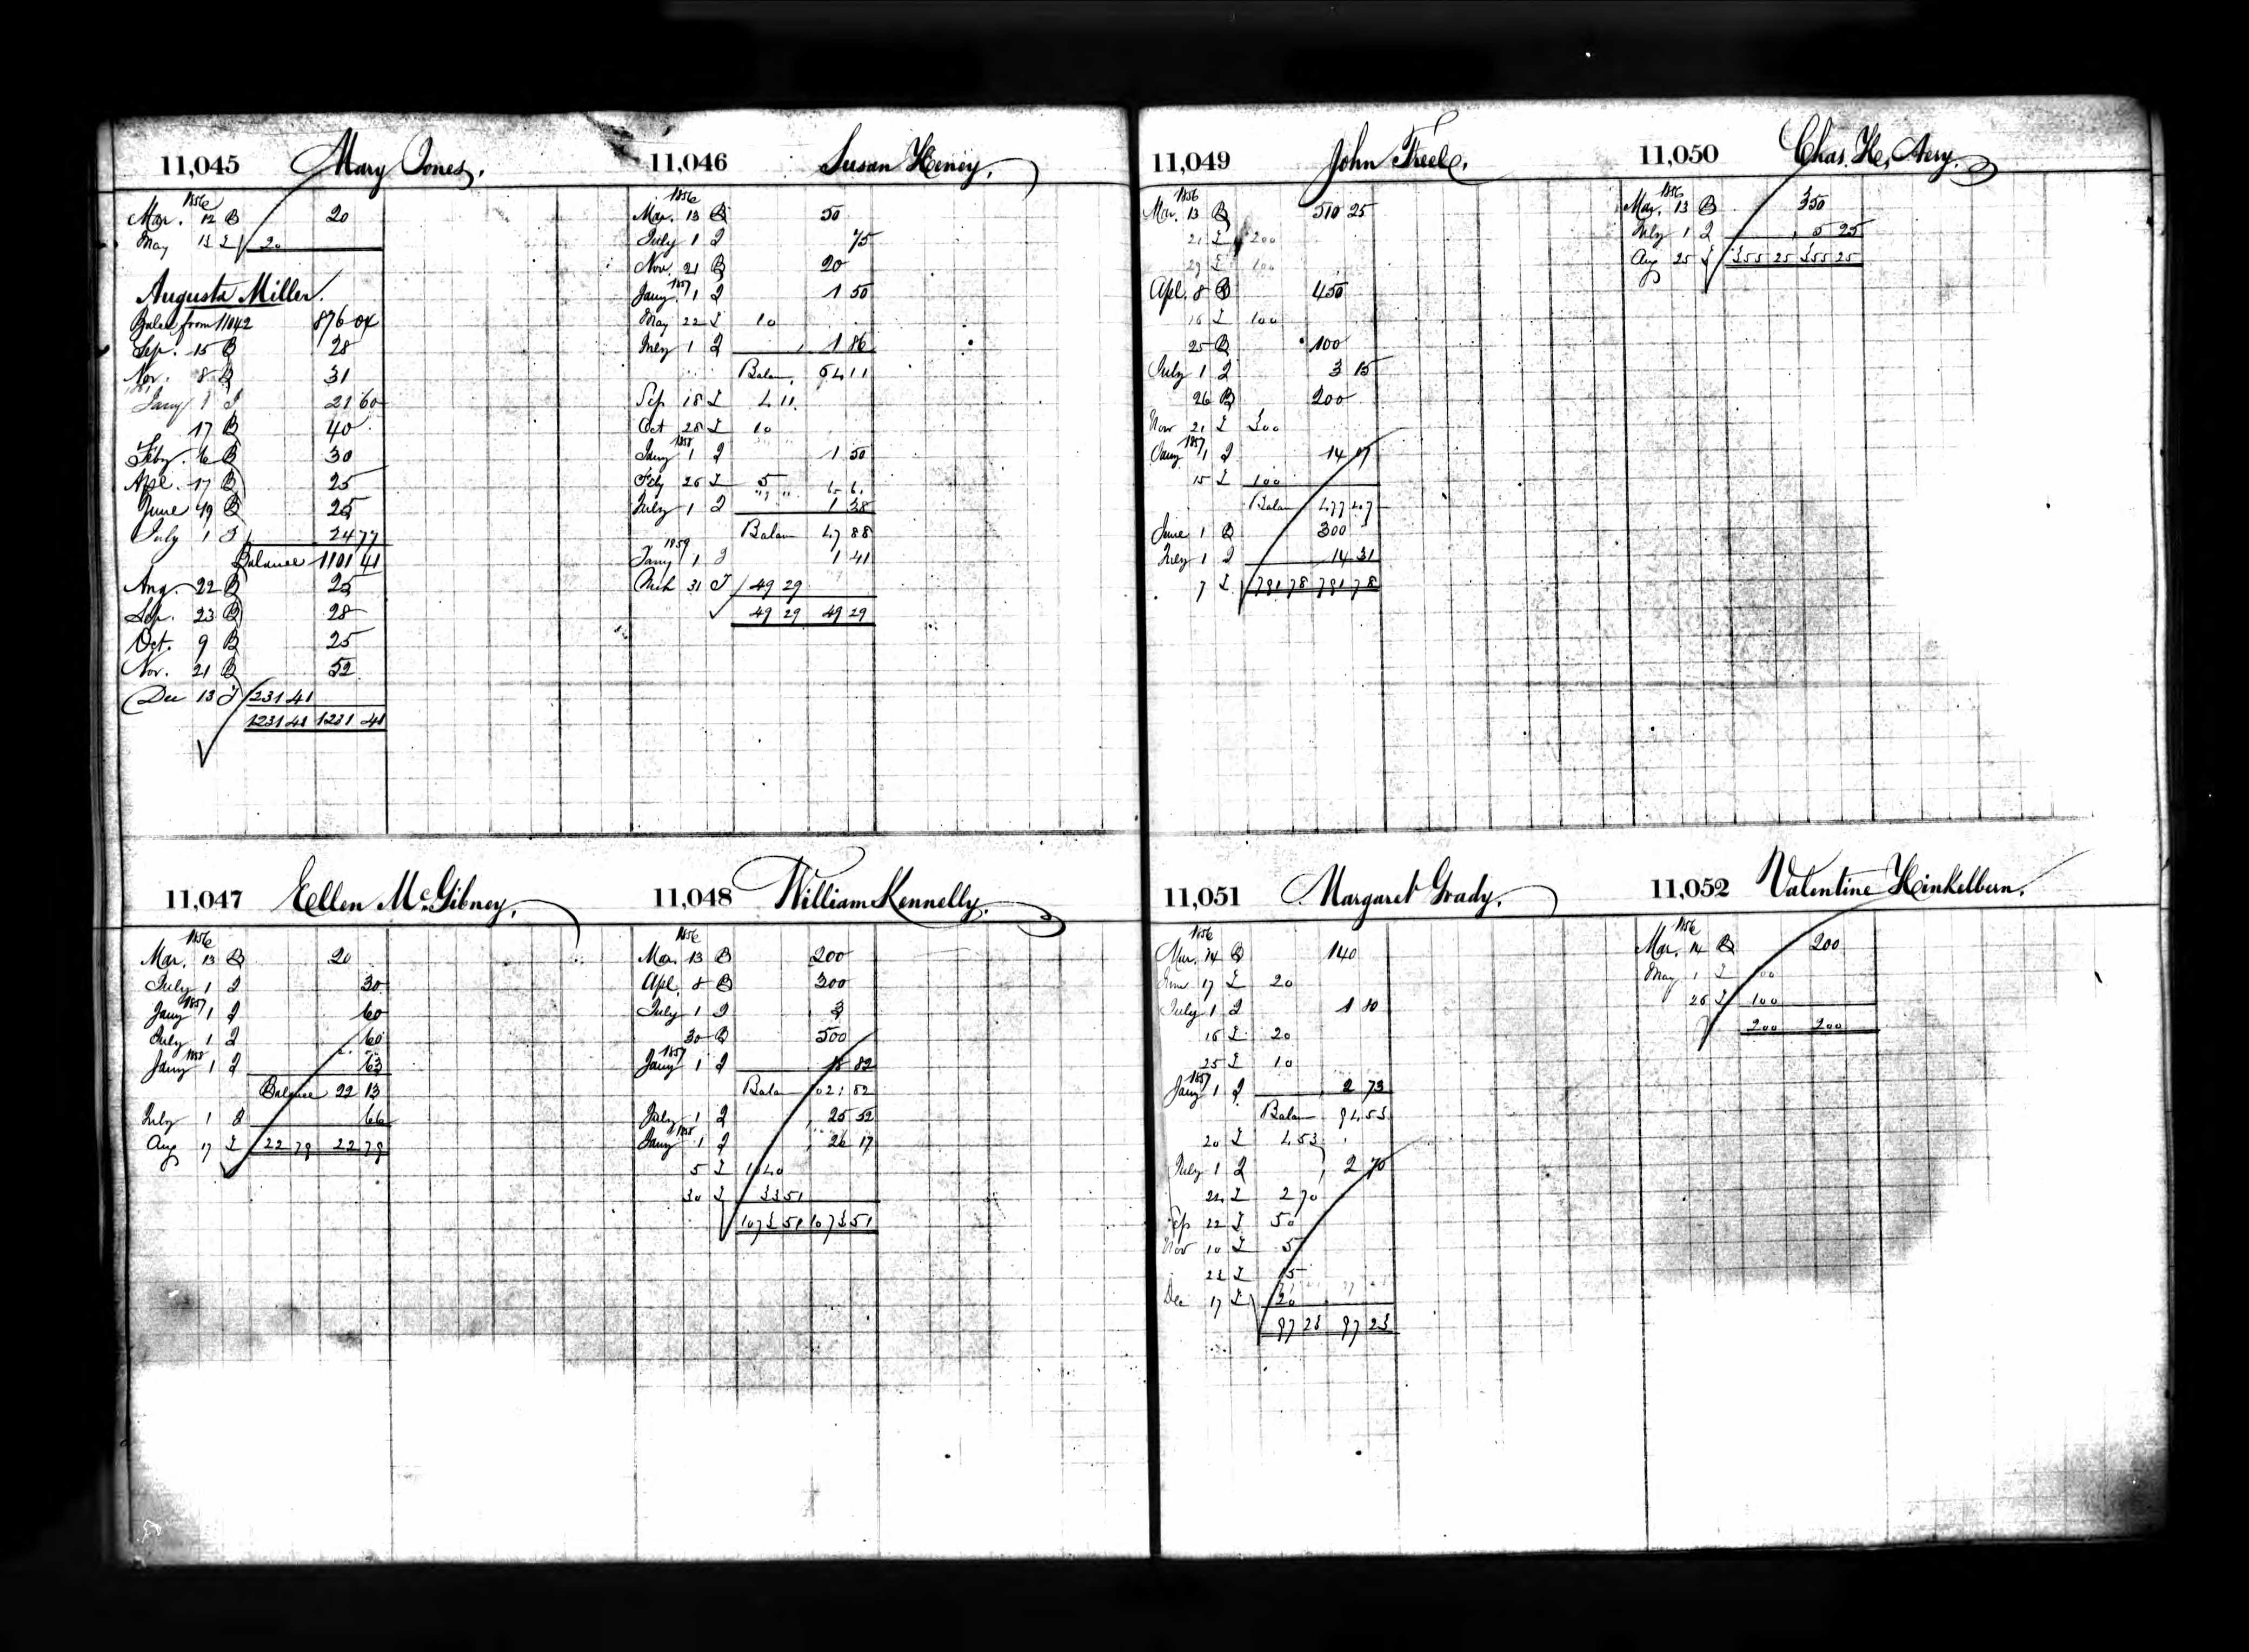 11,045 Mary Jones.
1856
Mar. 12 B 20
May 13 I 20
Augusta Miller.
Balce from 11042 876 04
Sep. 15 B 28
Nov. 8 B 31
Jany 1 I 21 60
17 B 40
Feby. 6 B 30
Apl. 17 B 25
June 19 B 25
July 1 I 24 77
Balance 1101 41
Aug. 22 B 25
Sep. 23 B 28
Oct. 9 B 25
Nov. 21 B 52
Dec 13 I 1231 41
1231 41 1231 41
11,046 Susan Heney.
1856
Mar. 13 B 50
July 1 I 75
Nov. 21 B 20
1857
Jany. 1 I 1 50
May 22 I 10
July 1 I 1 86
Balan. 64 11
Sep 18 I 4 11
Oct 28 I 10
1858
Jany 1 I 1 50
Feby 26 I 5
July 1 I 1 38
Balan 47 88
1859
Jany 1 I 1 41
Mch 31 I 49 29
49 29 49 29
11,047 Ellen McGibney.
1856
Mar. 13 B 20
July 1 I 30
1857
Jany 1 I 60
July 1 I 60
1858
Jany 1 I 63
Balance 22 13
July 1 I 66
Aug 17 I 22 79 22 79
11,048 William Kennelly.
1856
Mar. 13 B 200
Apl. 8 B 300
July 1 I 3
30 B 500
1857
Jany 1 I 18 82
Balan 1021 82
July 1 I 25 52
1858
Jany 1 I 26 17
5 I 1040
30 I 33 51
1073 51 1073 51
11,049 John Freel.
1856
Mar. 13 B 510 25
21 I 200
27 I 100
Apl. 8 B 450
16 I 100
25 B 100
July 1 I 3 15
26 B 200
Nov 21 I 300
1857
Jany 1 I 14 07
15 I 100
Balan 477 47
June 1 B 300
July 1 I 14 31
7 I 791 78 791 78
11,050 Chas. H. Avery.
1856
Mar. 13 B 350
July 1 I 5 25
Aug 25 I 355 25 355 25
11,051 Margaret Grady.
1856
Mar. 14 B 140
June 17 I 20
July 1 I 1 80
16 I 20
25 I 10
1857
Jany 1 I 2 73
Balan 94 53
20 I 4 53
July 1 I 2 70
24 I 2 70
Sep 22 I 50
Nov 10 I 5
23 I 15
Dec 17 I 20
97 23 97 23
11,052 Valentine Hinkelbein.
1856
Mar. 14 B 200
May 1 I 100
26 I 100
200 200